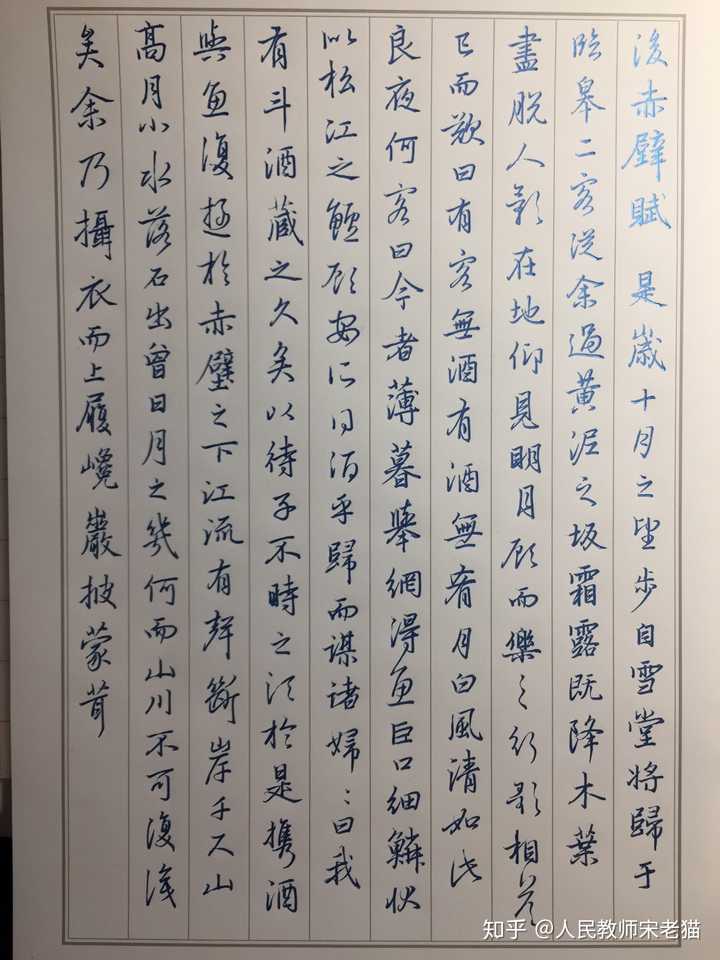 後赤壁賦 是歲十月之望步自雪堂將歸于
臨皋二客從余過黃泥之坂霜露既降木葉
盡脫人影在地仰見明月顧而樂之行歌相答
已而歎曰有客無酒有酒無肴月白風清如此
良夜何客曰今者薄暮舉網得魚巨口細鱗狀
似松江之鱸顧安所得酒乎歸而謀諸婦〻曰我
有斗酒藏之久矣以待子不時之須於是攜酒
與魚復遊於赤壁之下江流有聲斷岸千尺山
高月小水落石出曾日月之幾何而山川不可復識
矣余乃攝衣而上履巉巖披蒙茸
知乎 @人民教师宋老猫